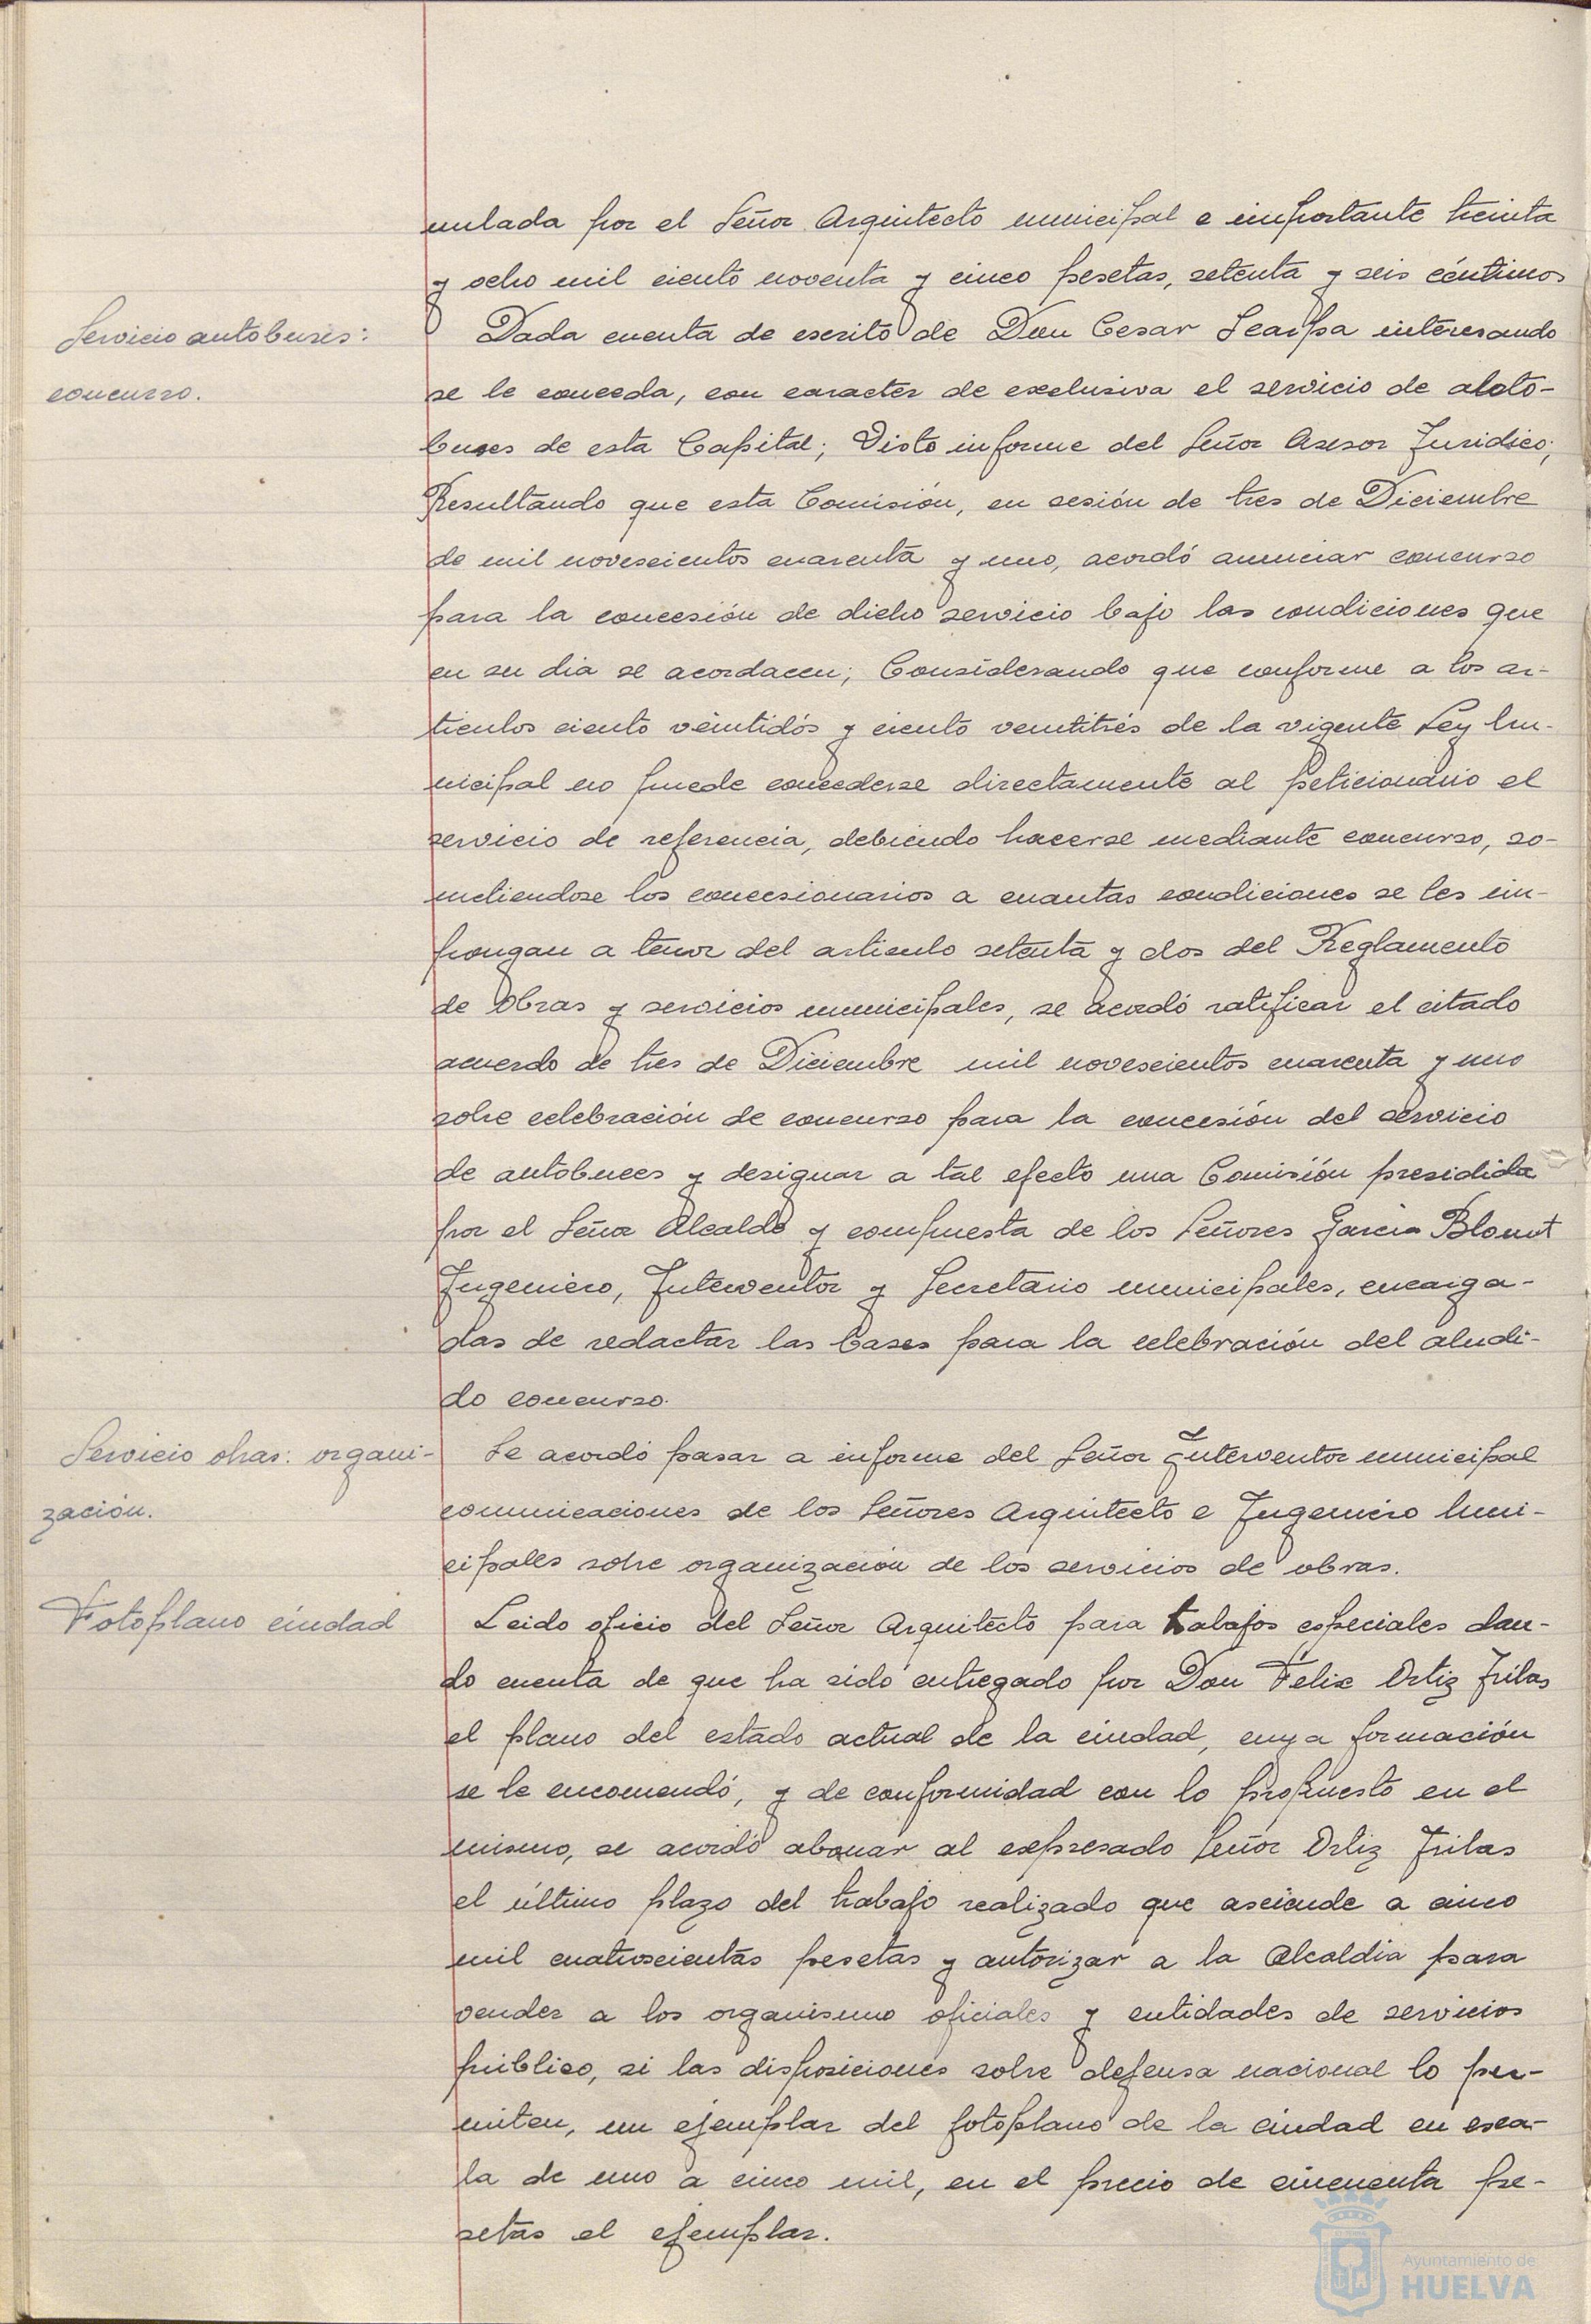 mulada por el Señor Arquitecto municipal e importante treinta
y ocho mil ciento noventa y cinco pesetas, setenta y seis céntimos
Servicio autobuses:
concurso.
Dada cuenta de escrito de Don Cesar Scarpa interesando
se le conceda, con caracter de exclusiva el servicio de auto-
buses de esta Capital; Visto informe del Señor Asesor Juridico;
Resultando que esta Comisión, en sesión de tres de Diciembre
de mil novescientos cuarenta y uno, acordó anunciar concurso
para la concesión de dicho servicio bajo las condiciones que
en su dia se acordacen; Considerando que conforme a los ar-
ticulos ciento veintidós y ciento veintitrés de la vigente Ley Mu-
nicipal no puede concederse directamente al peticionario el
servicio de referencia, debiendo hacerse mediante concurso, so-
metiendose los concesionarios a cuantas condiciones se les im-
pongan a tenor del articulo setenta y dos del Reglamento
de Obras y servicios municipales, se acordó ratificar el citado
acuerdo de tres de Diciembre mil novescientos cuarenta y uno
sobre celebración de concurso para la concesión del servicio
de autobuces y designar a tal efecto una Comisión presidida
por el Señor Alcalde y compuesta de los Señores Garcia Blount
Ingeniero, Interventor y Secretario municipales, encarga-
das de redactar las bases para la celebración del aludi-
do concurso.
Servicio obras: organi-
zación.
Se acordó pasar a informe del Señor Interventor municipal
comunicaciones de los Señores Arquitecto e Ingeniero Muni-
cipales sobre organización de los servicios de obras.
Fotoplano ciudad
Leido oficio del Señor Arquitecto para trabajos especiales dan-
do cuenta de que ha sido entregado por Don Felix Ortiz Frilas
el plano del estado actual de la ciudad, cuya formación
se le encomendó, y de conformidad con lo propuesto en el
mismo, se acordó abonar al expresado Señor Ortiz Frilas
el último plazo del trabajo realizado que asciende a cinco
mil cuatroscientas pesetas y autorizar a la Alcaldia para
vender a los organismo oficiales y entidades de servicios
público, si las disposiciones sobre defensa nacional lo per-
miten, un ejemplar del fotoplano de la ciudad en esca-
la de uno a cinco mil, en el precio de cincuenta pe-
setas el ejemplar.
Ayuntamiento de
HUELVA